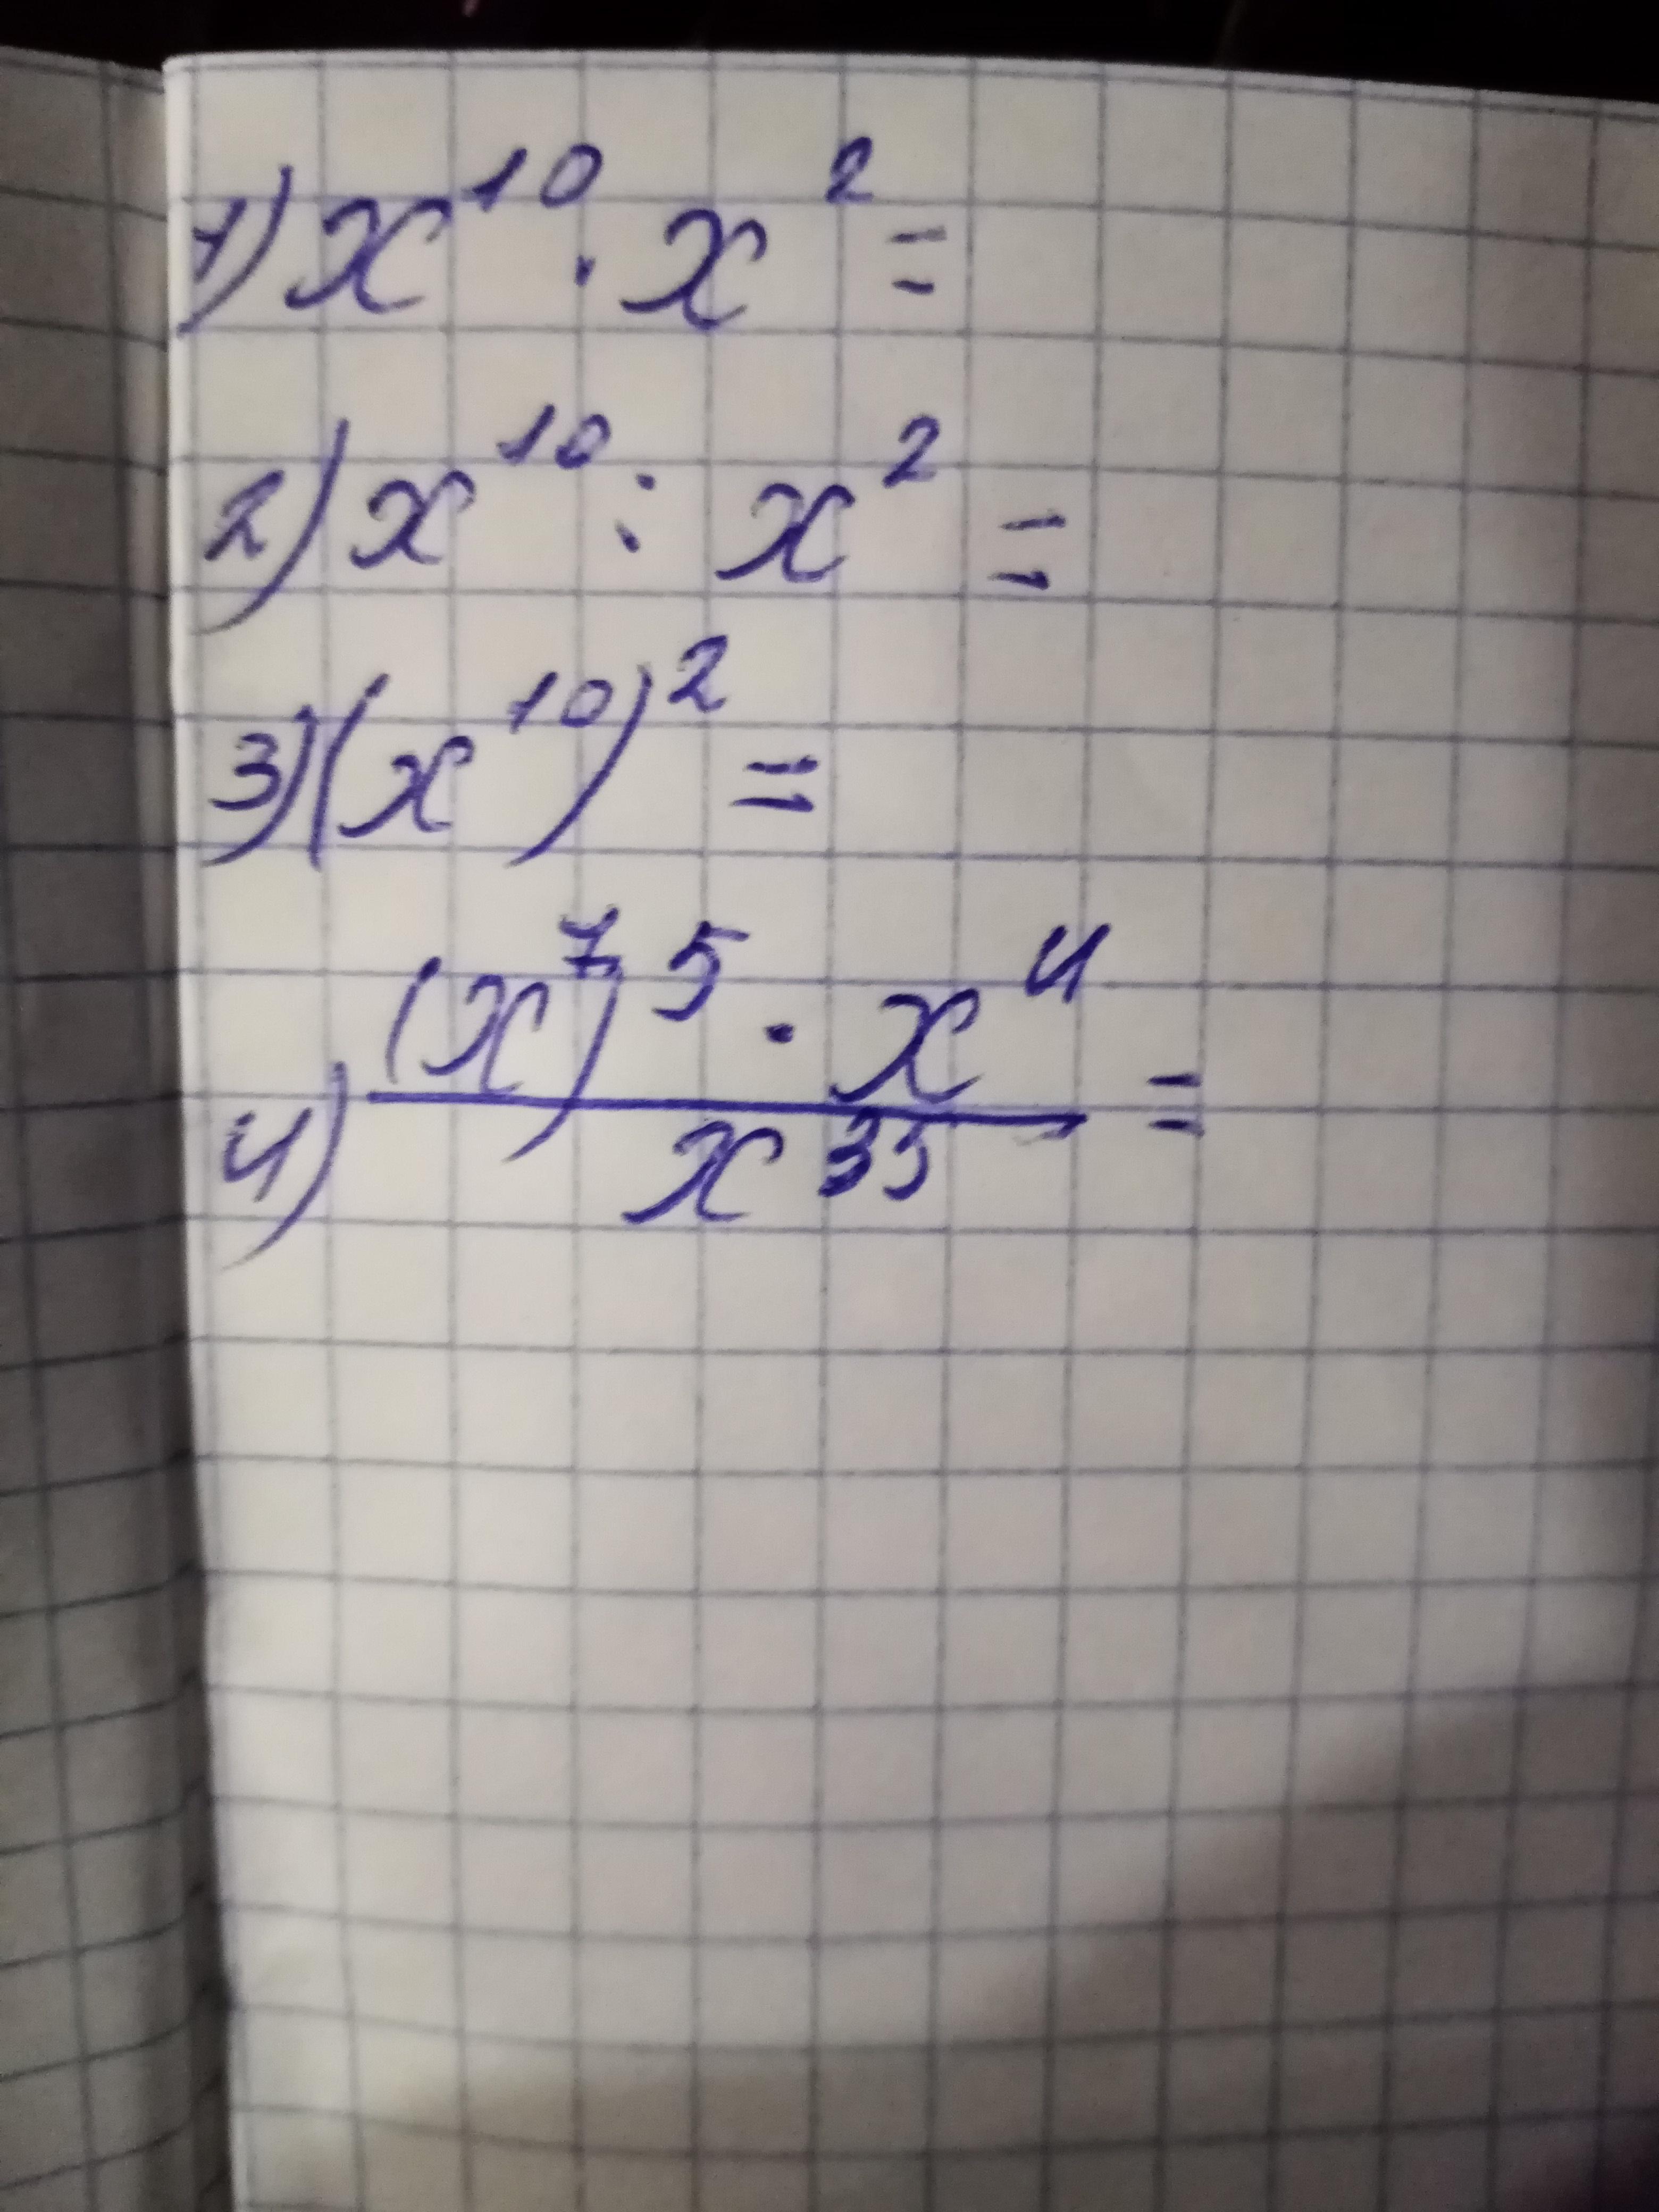 1) x¹⁰ · x² =
2) x¹⁰ : x² =
3) (x¹⁰)² =
4) (x⁷)⁵ · x⁴ / x³⁵ =